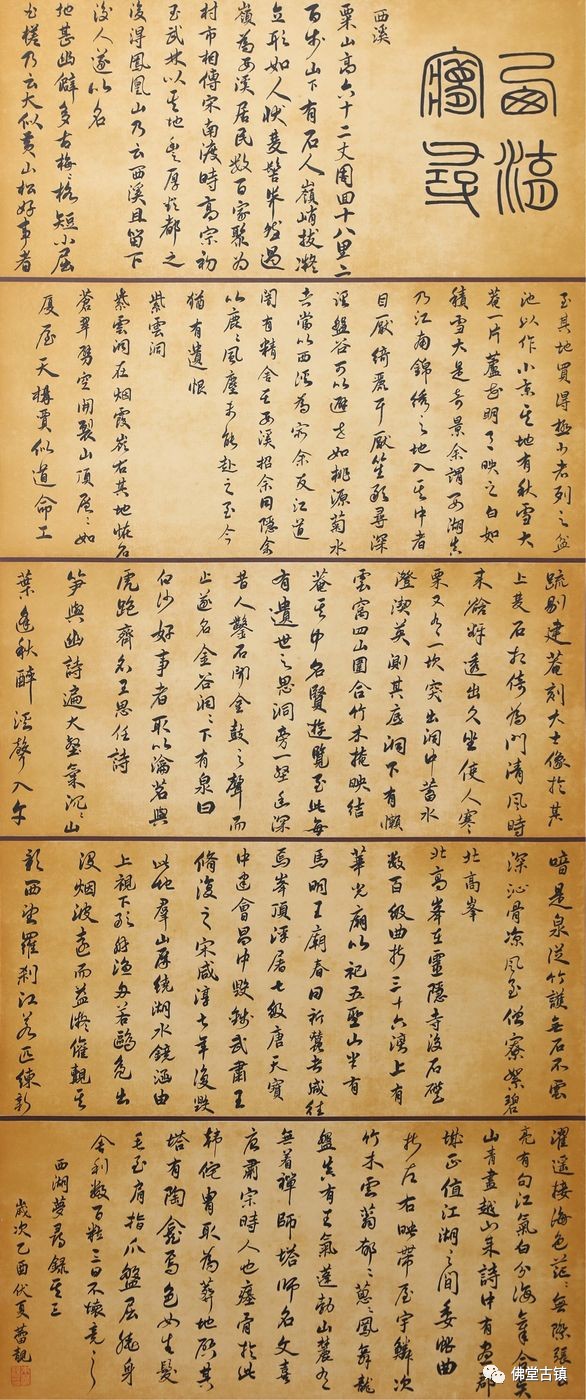 西湖
夢尋
西溪
粟山高六十二丈周回十八里二
百步山下有石人嶺峭拔凝
立形如人狀雙髻聳然過
嶺為西溪居民數百家聚為
村市相傳宋南渡時高宗初
至武林以其地豐厚欲都之
後得鳳凰山乃云西溪且留下
後人遂以名
地甚幽僻多古梅梅格短小屈
槎乃云大似黃山松好事者
至其地買得極小者列之盆
池以作小景其地有秋雪大
菴一片蘆花明月映之白如
積雪大是奇景余謂西湖真
乃江南錦繡之地入其中者
目厭綺麗耳厭笙歌尋深
溪盤谷可以避世如桃源菊水
者當以西溪為最余友江道
闇有精舍在西溪招余同隱余
以鹿鹿風塵未能赴之至今
猶有遺恨
紫雲洞
紫雲洞在烟霞嶺右其地怪石
蒼翠劈空開裂山頂層層如
厦屋天構賈似道命工
疏剔建菴刻大士像於其
上雙石相倚為門清風時
來谽谺透出久坐使人寒
栗又有一坎突出洞中蓄水
澄潔莫測其底洞下有懶
雲窩四山圍合竹木掩映結
菴其中名賢遊覽至此每
有遺世之思洞旁一壑幽深
昔人鑿石聞金鼓之聲而
止遂名金谷洞洞下有泉曰
白沙好事者取以瀹茗與
虎跑齊名王思任詩
笋輿幽討遍大壑氣沉沉山
葉逢秋醉溪聲入午
喑是泉從竹護無石不雲
深沁骨涼風至僧寮絮碧
北高峯
北高峯在靈隱寺後石磴
數百級曲折三十六灣上有
華光廟以祀五聖山半有
馬明王廟春日祈蠶者咸往
焉峯頂浮屠七級唐天寶
中建會昌中毀錢武肅王
脩復之宋咸淳七年復毀
此地羣山屏繞湖水鏡涵由
上視下歌舫漁舟若鷗鳧出
沒烟波遠而益微僅覿其
影西望羅剎江若匹練新
濯遙接海色茫茫無際張公
亮有句江氣白分海氣合吳
山青盡越山來詩中有畫郡
城正值江湖之間委蛇曲
折左右映帶屋宇鱗次
竹木雲蓊郁郁蔥蔥鳳舞龍
盤真有王氣蓬勃山麓有
無著禪師塔師名文喜
唐肅宗時人也瘞骨於此
韓侂胄取為葬地啟其
塔有陶龕焉色如生髮
毛至肩指爪盤屈繞身
舍利數百粒三日不壞竟
西湖夢尋錄其三
歲次乙酉伏夏
佛堂古镇